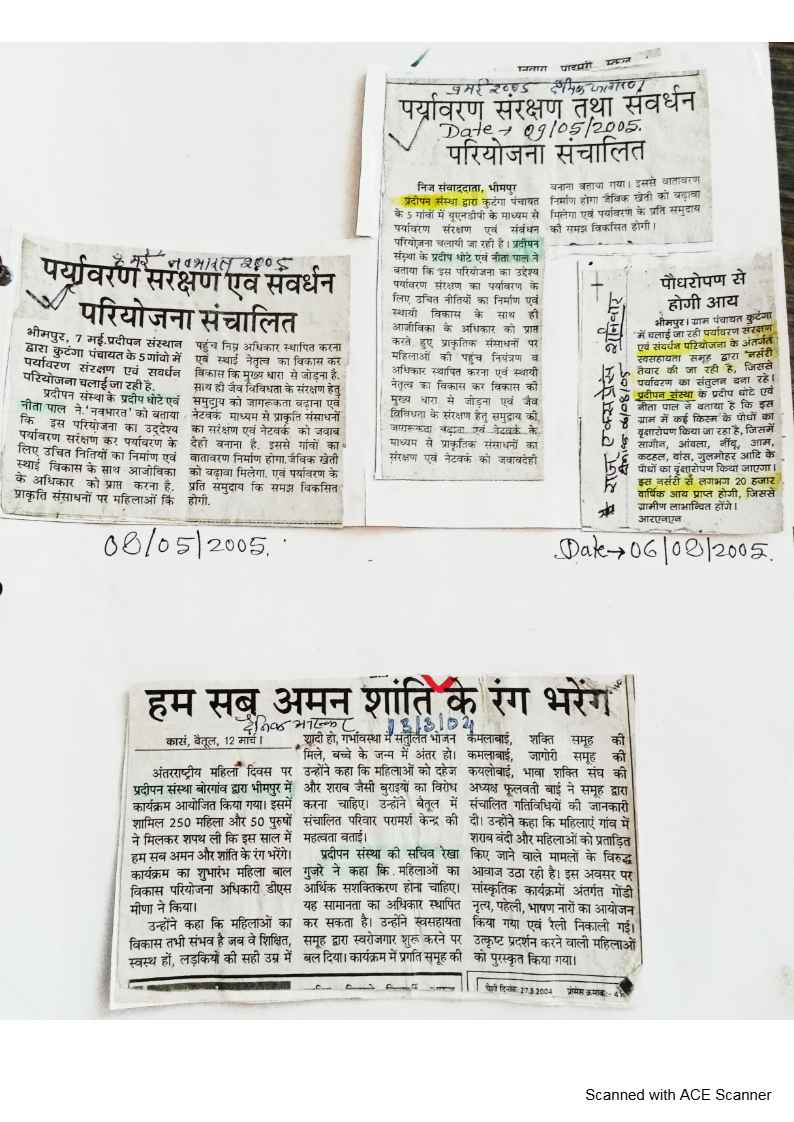 ९ मई २००५ दैनिक जागरण
पर्यावरण संरक्षण तथा संवर्धन
Date → 09/05/2005.
परियोजना संचालित
निज संवाददाता, भीमपुर
प्रदीपन संस्था द्वारा कुटंगा पंचायत
के 5 गांवों में यूएनडीपी के माध्यम से
पर्यावरण संरक्षण एवं संबंधन
परियोजना चलायी जा रही है। प्रदीपन
संस्था के प्रदीप धोटे एवं नीता पाल ने
बताया कि इस परियोजना का उद्देश्य
पर्यावरण संरक्षण का पर्यावरण के
लिए उचित नीतियों का निर्माण एवं
स्थायी विकास के साथ ही
आजीविका के अधिकार को प्राप्त
करते हुए प्राकृतिक संसाधनों पर
महिलाओं की पहुंच नियंत्रण व
अधिकार स्थापित करना एवं स्थायी
नेतृत्व का विकास कर विकास की
मुख्य धारा से जोड़ना एवं जैव
विविधता के संरक्षण हेतु समुदाय की
जागरूकता बढ़ाना एवं नेटवर्क के
माध्यम से प्राकृतिक संसाधनों का
संरक्षण एवं नेटवर्क को जवाबदेही
बनाना बताया गया। इससे वातावरण
निर्माण होगा जैविक खेती को बढ़ावा
मिलेगा एवं पर्यावरण के प्रति समुदाय
की समझ विकसित होगी।
८ मई नवभारत २००५
पर्यावरण संरक्षण एवं संवर्धन
परियोजना संचालित
भीमपुर, 7 मई.प्रदीपन संस्थान
द्वारा कुटंगा पंचायत के 5 गांवो में
पर्यावरण संरक्षण एवं सवर्धन
परियोजना चलाई जा रही है.
प्रदीपन संस्था के प्रदीप धोटे एवं
नीता पाल ने.'नवभारत' को बताया
कि इस परियोजना का उद्देश्य
पर्यावरण संरक्षण कर पर्यावरण के
लिए उचित नितियों का निर्माण एवं
स्थाई विकास के साथ आजीविका
के अधिकार को प्राप्त करना है.
प्राकृति संसाधनों पर महिलाओं कि
पहुंच निम्न अधिकार स्थापित करना
एवं स्थाई नेतृत्व का विकास कर
विकास कि मुख्य धारा से जोड़ना है.
साथ ही जैव विविधता के संरक्षण हेतु
समुदाय को जागरूकता बढ़ाना एवं
नेटवर्क माध्यम से प्राकृति संसाधनों
का सरंक्षण एवं नेटवर्क को जवाब
देही बनाना है. इससे गांवों का
वातावरण निर्माण होगा.जैविक खेती
को बढ़ावा मिलेगा. एवं पर्यावरण के
प्रति समुदाय कि समझ विकसित
होगी.
08/05/2005.
पौधरोपण से
होगी आय
भीमपुर। ग्राम पंचायत कुटंगा
में चलाई जा रही पर्यावरण संरक्षण
एवं संवर्धन परियोजना के अंतर्गत
स्वसहायता समूह द्वारा नर्सरी
तैयार की जा रही है, जिससे
पर्यावरण का संतुलन बना रहे।
प्रदीपन संस्था के प्रदीप धोटे एवं
नीता पाल ने बताया है कि इस
ग्राम में कई किस्म के पौधों का
वृक्षारोपण किया जा रहा है, जिसमें
सागौन, आंवला, नींबू, आम,
कटहल, बांस, गुलमोहर आदि के
पौधों का वृक्षारोपण किया जाएगा।
इस नर्सरी से लगभग 20 हजार
वार्षिक आय प्राप्त होगी, जिससे
ग्रामीण लाभान्वित होंगे।
आरएनएन
राज एक्सप्रेस शनिवार
दिनांक 06/08/05
Date→06/08/2005.
हम सब अमन शांति के रंग भरेंगे
दैनिक भास्कर 13/3/04
कासं, बैतूल, 12 मार्च।
अंतरराष्ट्रीय महिला दिवस पर
प्रदीपन संस्था बोरगांव द्वारा भीमपुर में
कार्यक्रम आयोजित किया गया। इसमें
शामिल 250 महिला और 50 पुरुषों
ने मिलकर शपथ ली कि इस साल में
हम सब अमन और शांति के रंग भरेंगे।
कार्यक्रम का शुभारंभ महिला बाल
विकास परियोजना अधिकारी डीएस
मीणा ने किया।
उन्होंने कहा कि महिलाओं का
विकास तभी संभव है जब वे शिक्षित,
स्वस्थ हों, लड़कियों की सही उम्र में
शादी हो, गर्भावस्था में संतुलित भोजन
मिले, बच्चे के जन्म में अंतर हो।
उन्होंने कहा कि महिलाओं को दहेज
और शराब जैसी बुराइयों का विरोध
करना चाहिए। उन्होंने बैतूल में
संचालित परिवार परामर्श केन्द्र की
महत्वता बताई।
प्रदीपन संस्था की सचिव रेखा
गुजरे ने कहा कि महिलाओं का
आर्थिक सशक्तिकरण होना चाहिए।
यह सामानता का अधिकार स्थापित
कर सकता है। उन्होंने स्वसहायता
समूह द्वारा स्वरोजगार शुरू करने पर
बल दिया। कार्यक्रम में प्रगति समूह की
कमलाबाई, शक्ति समूह की
कमलाबाई, जागोरी समूह की
कयलोबाई, भावा शक्ति संघ की
अध्यक्ष फूलवती बाई ने समूह द्वारा
संचालित गतिविधियों की जानकारी
दी। उन्होंने कहा कि महिलाएं गांव में
शराब बंदी और महिलाओं को प्रताड़ित
किए जाने वाले मामलों के विरुद्ध
आवाज उठा रही है। इस अवसर पर
सांस्कृतिक कार्यक्रमों अंतर्गत गोंडी
नृत्य, पहेली, भाषण नारों का आयोजन
किया गया एवं रैली निकाली गई।
उत्कृष्ट प्रदर्शन करने वाली महिलाओं
को पुरस्कृत किया गया।
27.3.2004
Scanned with ACE Scanner